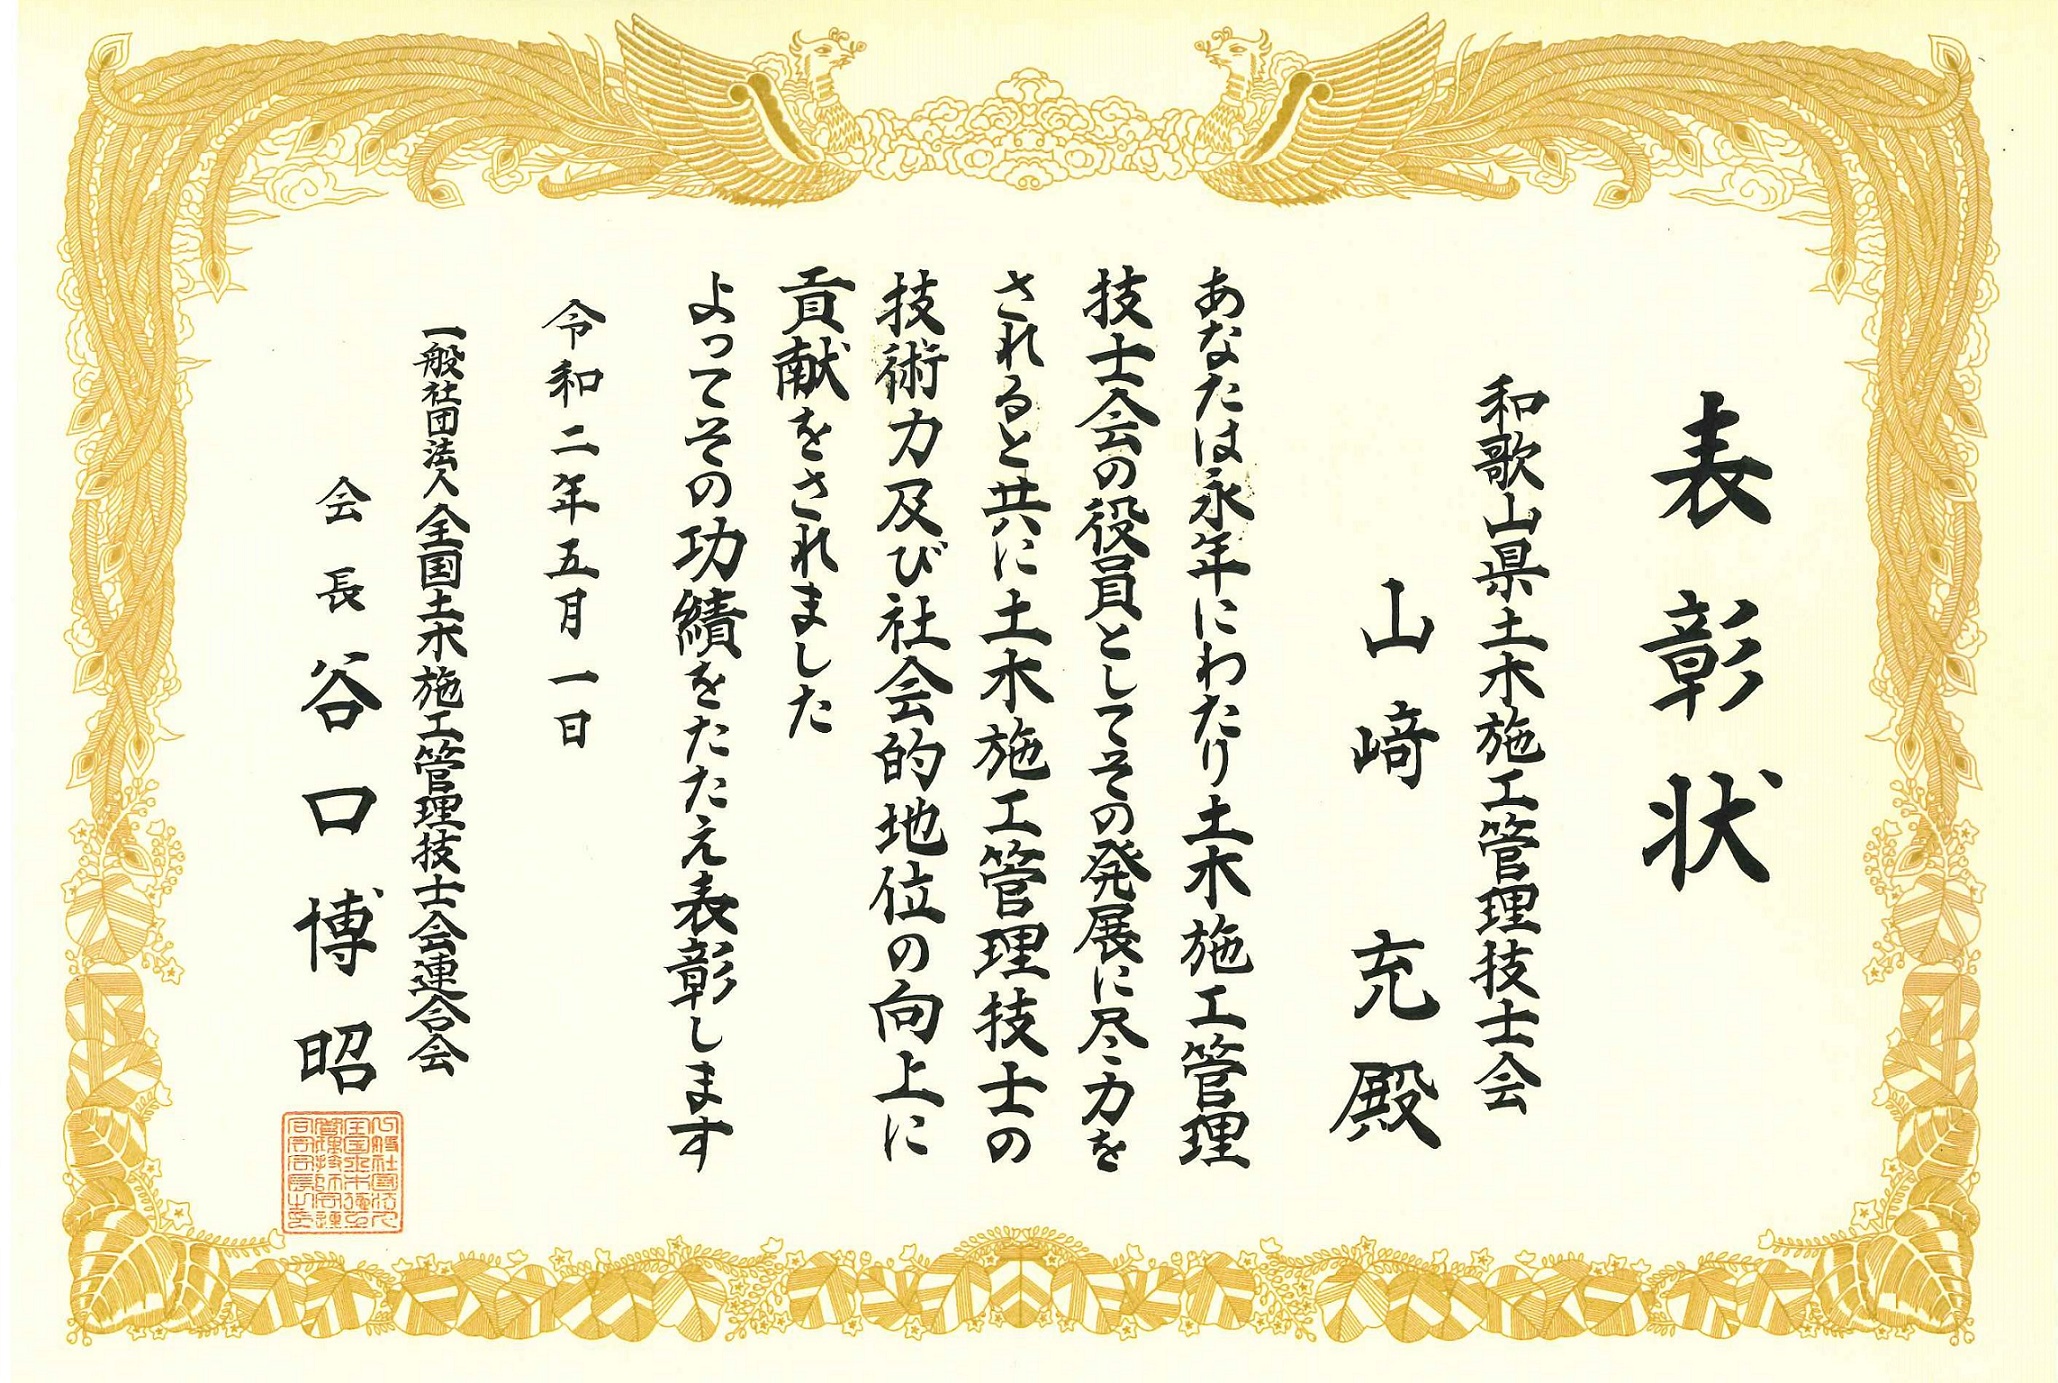 表彰状
和歌山県土木施工管理技士会
山﨑充殿
あなたは永年にわたり土木施工管理
技士会の役員としてその発展に尽力を
されると共に土木施工管理技士の
技術力及び社会的地位の向上に
貢献をされました
よってその功績をたたえ表彰します
令和二年五月一日
一般社団法人全国土木施工管理技士会連合会
会長谷口博昭